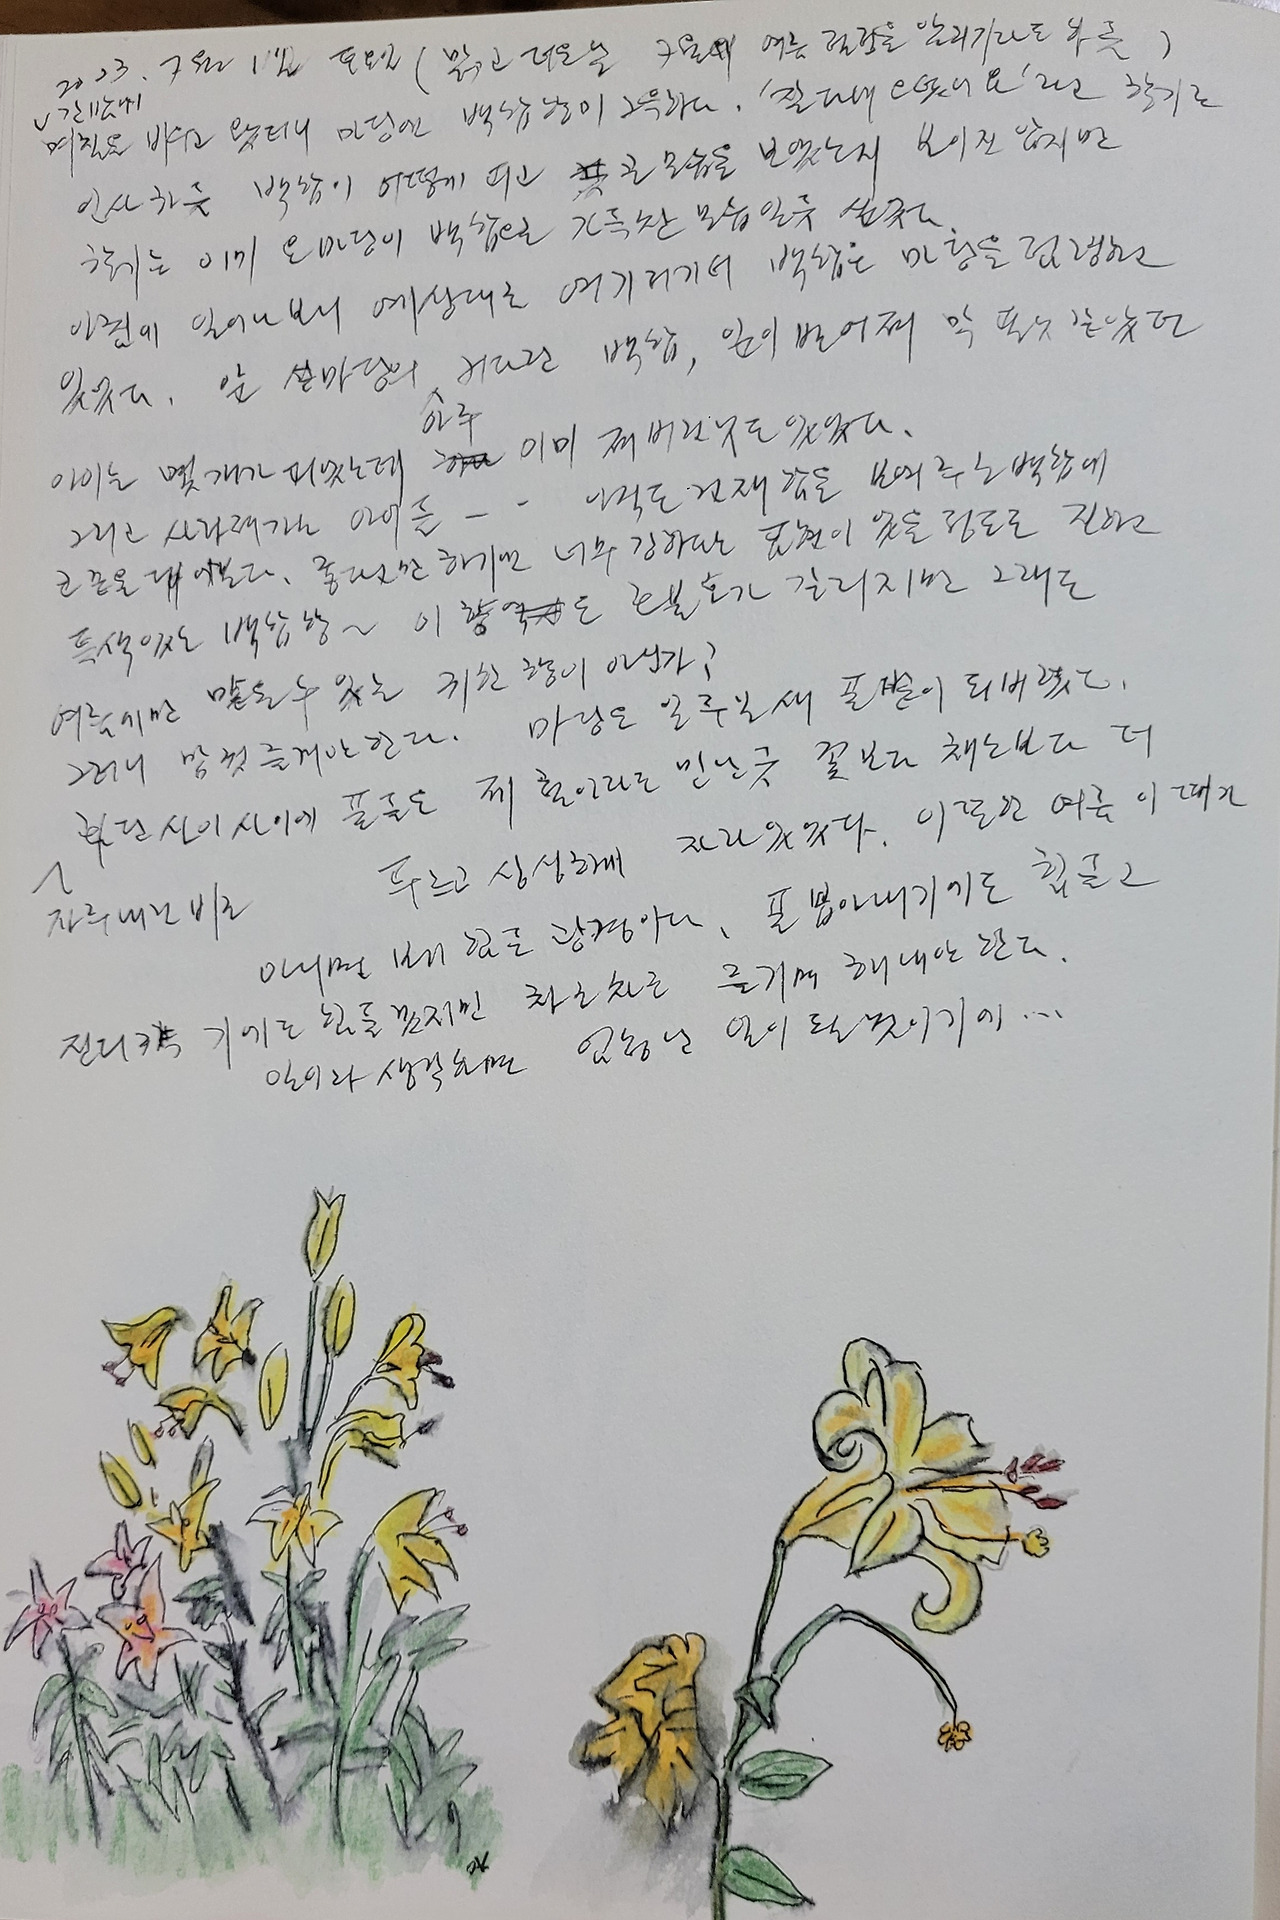 2023. 7월 1일 토요일 ( 맑고 더운날 7월의 여름 열람을 알리기라도 하듯 )
간밤에
며칠을 비우고 왔더니 마당엔 백합향이 그윽하다. '잘다녀오셨나요'라고 향기로
인사하듯 백합이 어떻게 피고 큰 모습을 보였는지 보이진 않지만
향기는 이미 온마당이 백합으로 가득찬 모습일듯 싶었다.
아침에 일어나보니 예상대로 여기저기서 백합은 마당을 점령하고
있었다. 앞 마당의 커다란 백합, 일이 벌어져 막 필것 같았던
아주
아이는 몇개가 피었는데 이미 져버린것도 있었다.
그리고 사라져가는 아이들 - - 아직도 건재함을 보여주는 백합에
코끝을 대어본다. 좋다고만 하기엔 너무 강하다는 표현이 맞을 정도로 진하고
특색있는 백합향~ 이 향 도 호불호가 갈리지만 그래도
여름에만 맡을수 있는 귀한 향이 아닌가?
그러니 맘껏 즐겨야 한다. 마당은 일주일새 풀밭이 되버렸다.
화단 사이사이에 풀들은 제 철이라도 만난듯 꽃보다 채소보다 더
자주내린 비로 푸르고 싱싱하게 자라 있었다. 이 또한 여름 이 때가
아니면 보기 힘들 광경이다. 풀 뽑아내기에도 힘들고
견디기에도 힘들겠지만 차근차근 즐기며 해내야 한다.
일이라 생각하면 엄청난 일이 될것이기에 ...